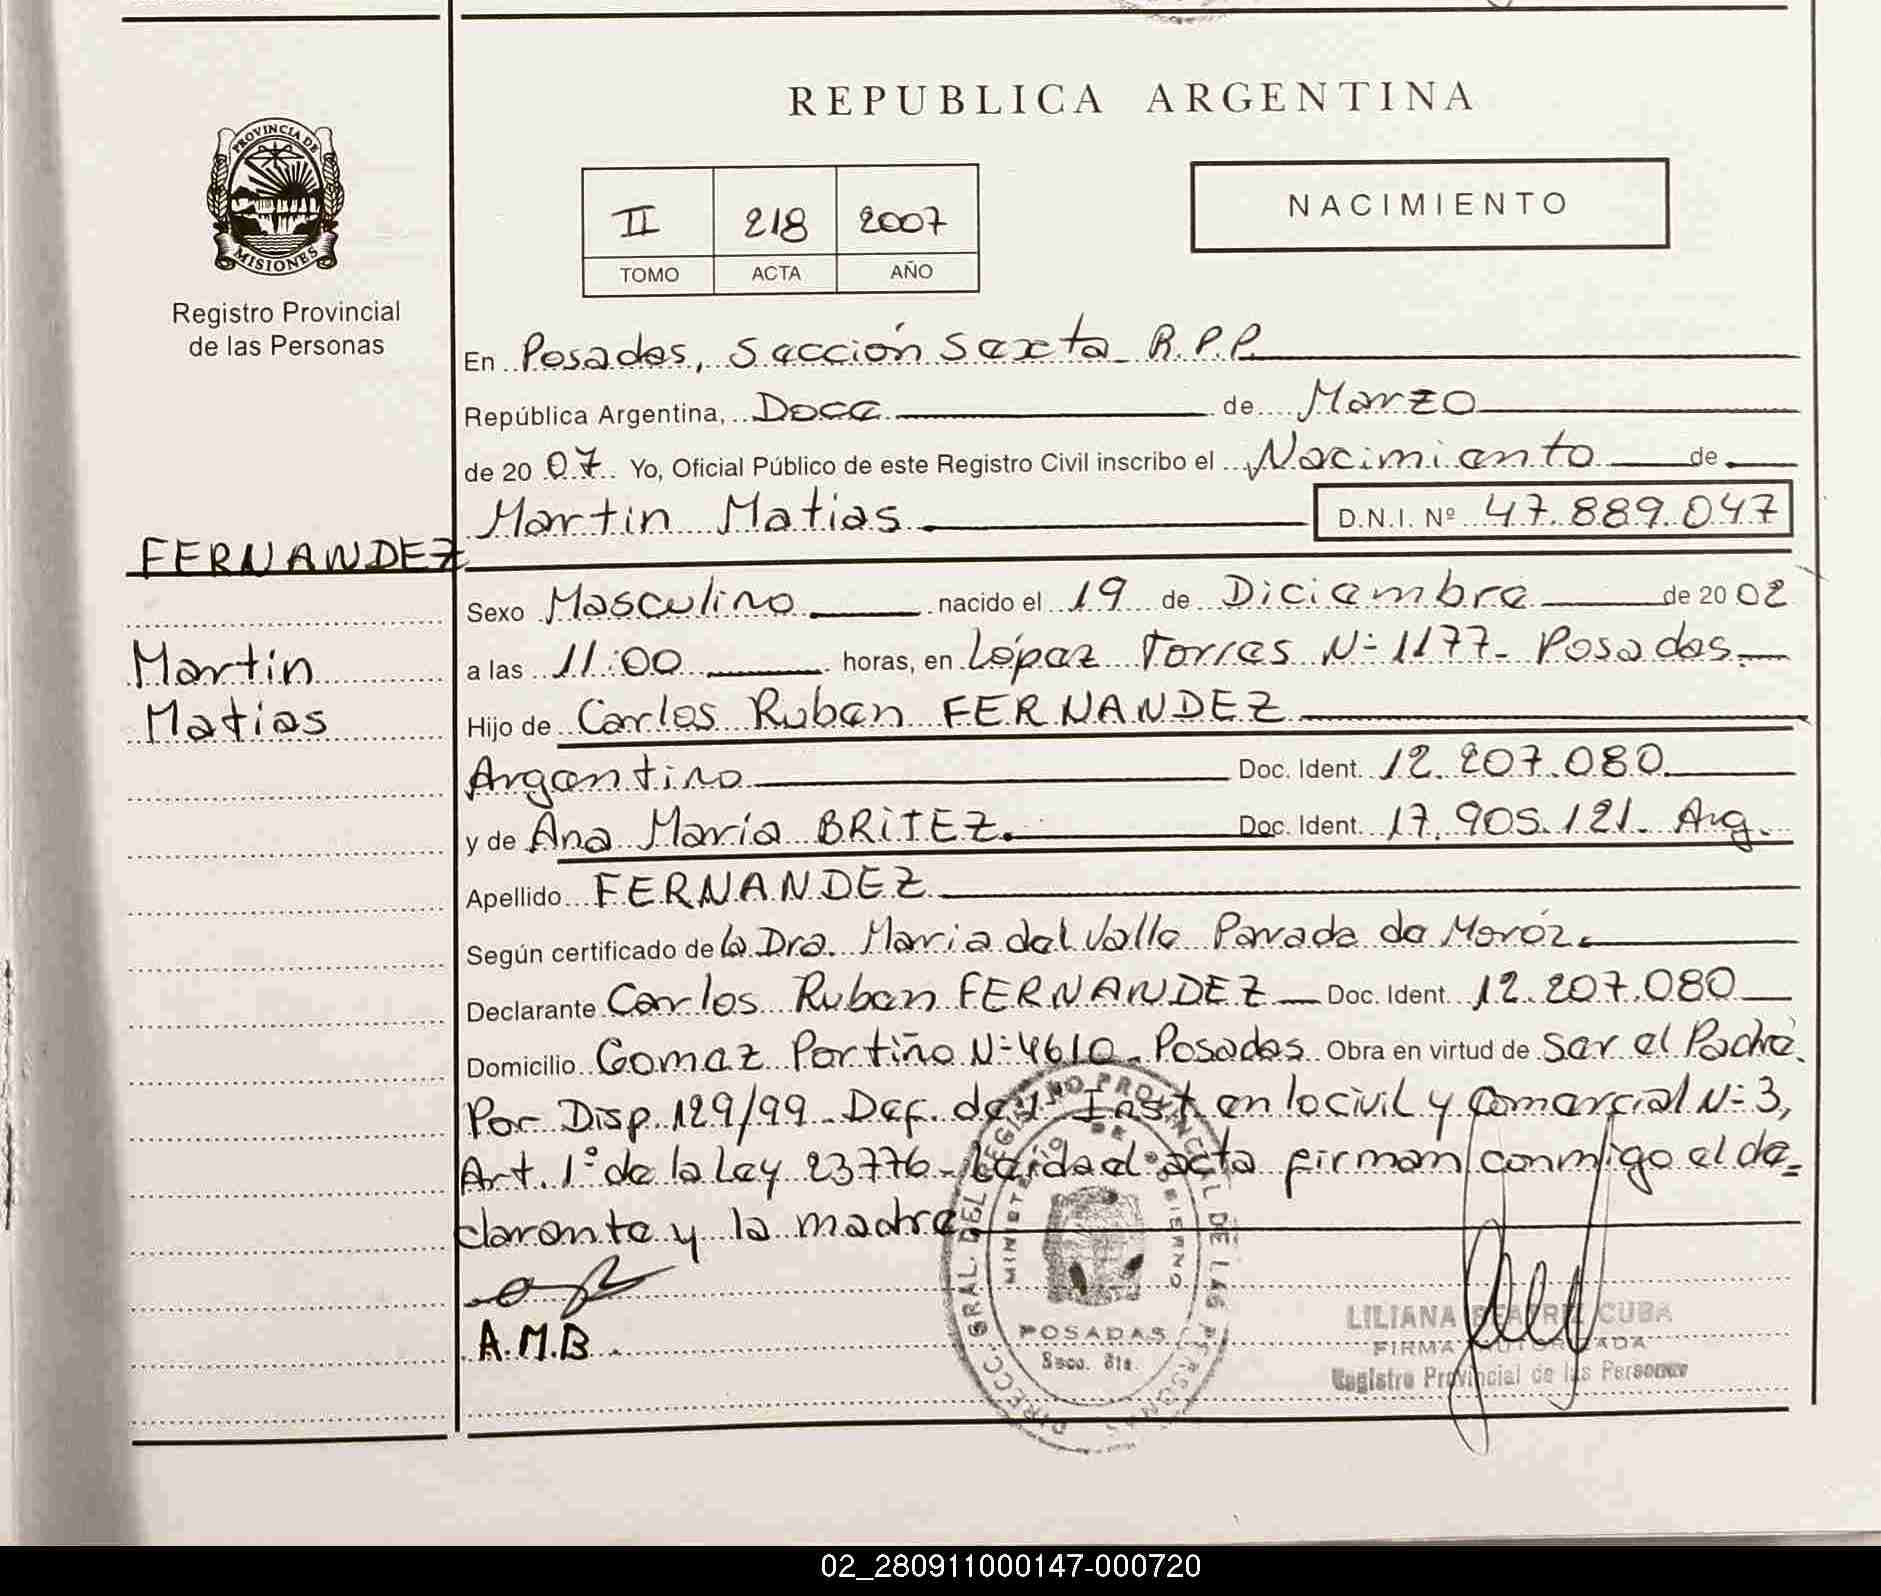 REPUBLICA ARGENTINA
PROVINCIA DE
MISIONES
Registro Provincial
de las Personas
II 218 2007
TOMO ACTA AÑO
NACIMIENTO
En Posadas, Sección Sexta R.P.P.
República Argentina, Doce de Marzo
de 20 07 Yo, Oficial Público de este Registro Civil inscribo el Nacimiento de
Martin Matias D.N.I. Nº 47.889.047
FERNANDEZ
Martin
Matias
Sexo Masculino nacido el 19 de Diciembre de 20 02
a las 11:00 horas, en López Torres N- 1177- Posadas.
Hijo de Carlos Ruben FERNANDEZ
Argentino Doc. Ident. 12.207.080.
y de Ana Maria BRITEZ. Doc. Ident. 17.905.121. Arg.
Apellido FERNANDEZ
Según certificado de la Dra. Maria del Valle Parada de Moróz.
Declarante Carlos Ruben FERNANDEZ Doc. Ident. 12.207.080
Domicilio Gomez Portiño N- 4610- Posadas Obra en virtud de ser el Padre.
Por Disp. 129/99- Def. de 1º Inst en lo civil y Comercial N- 3,
Art. 1º de la Ley 23776- Leida el acta firman conmigo el de-
clarante y la madre
A.M.B.
DIRECC. GRAL. DEL REGISTRO PROVINCIAL DE LAS PERSONAS
MINISTERIO DE GOBIERNO
POSADAS
Secc. 6ta.
LILIANA BEATRIZ CUBA
FIRMA AUTORIZADA
Registro Provincial de las Personas
02_280911000147-000720